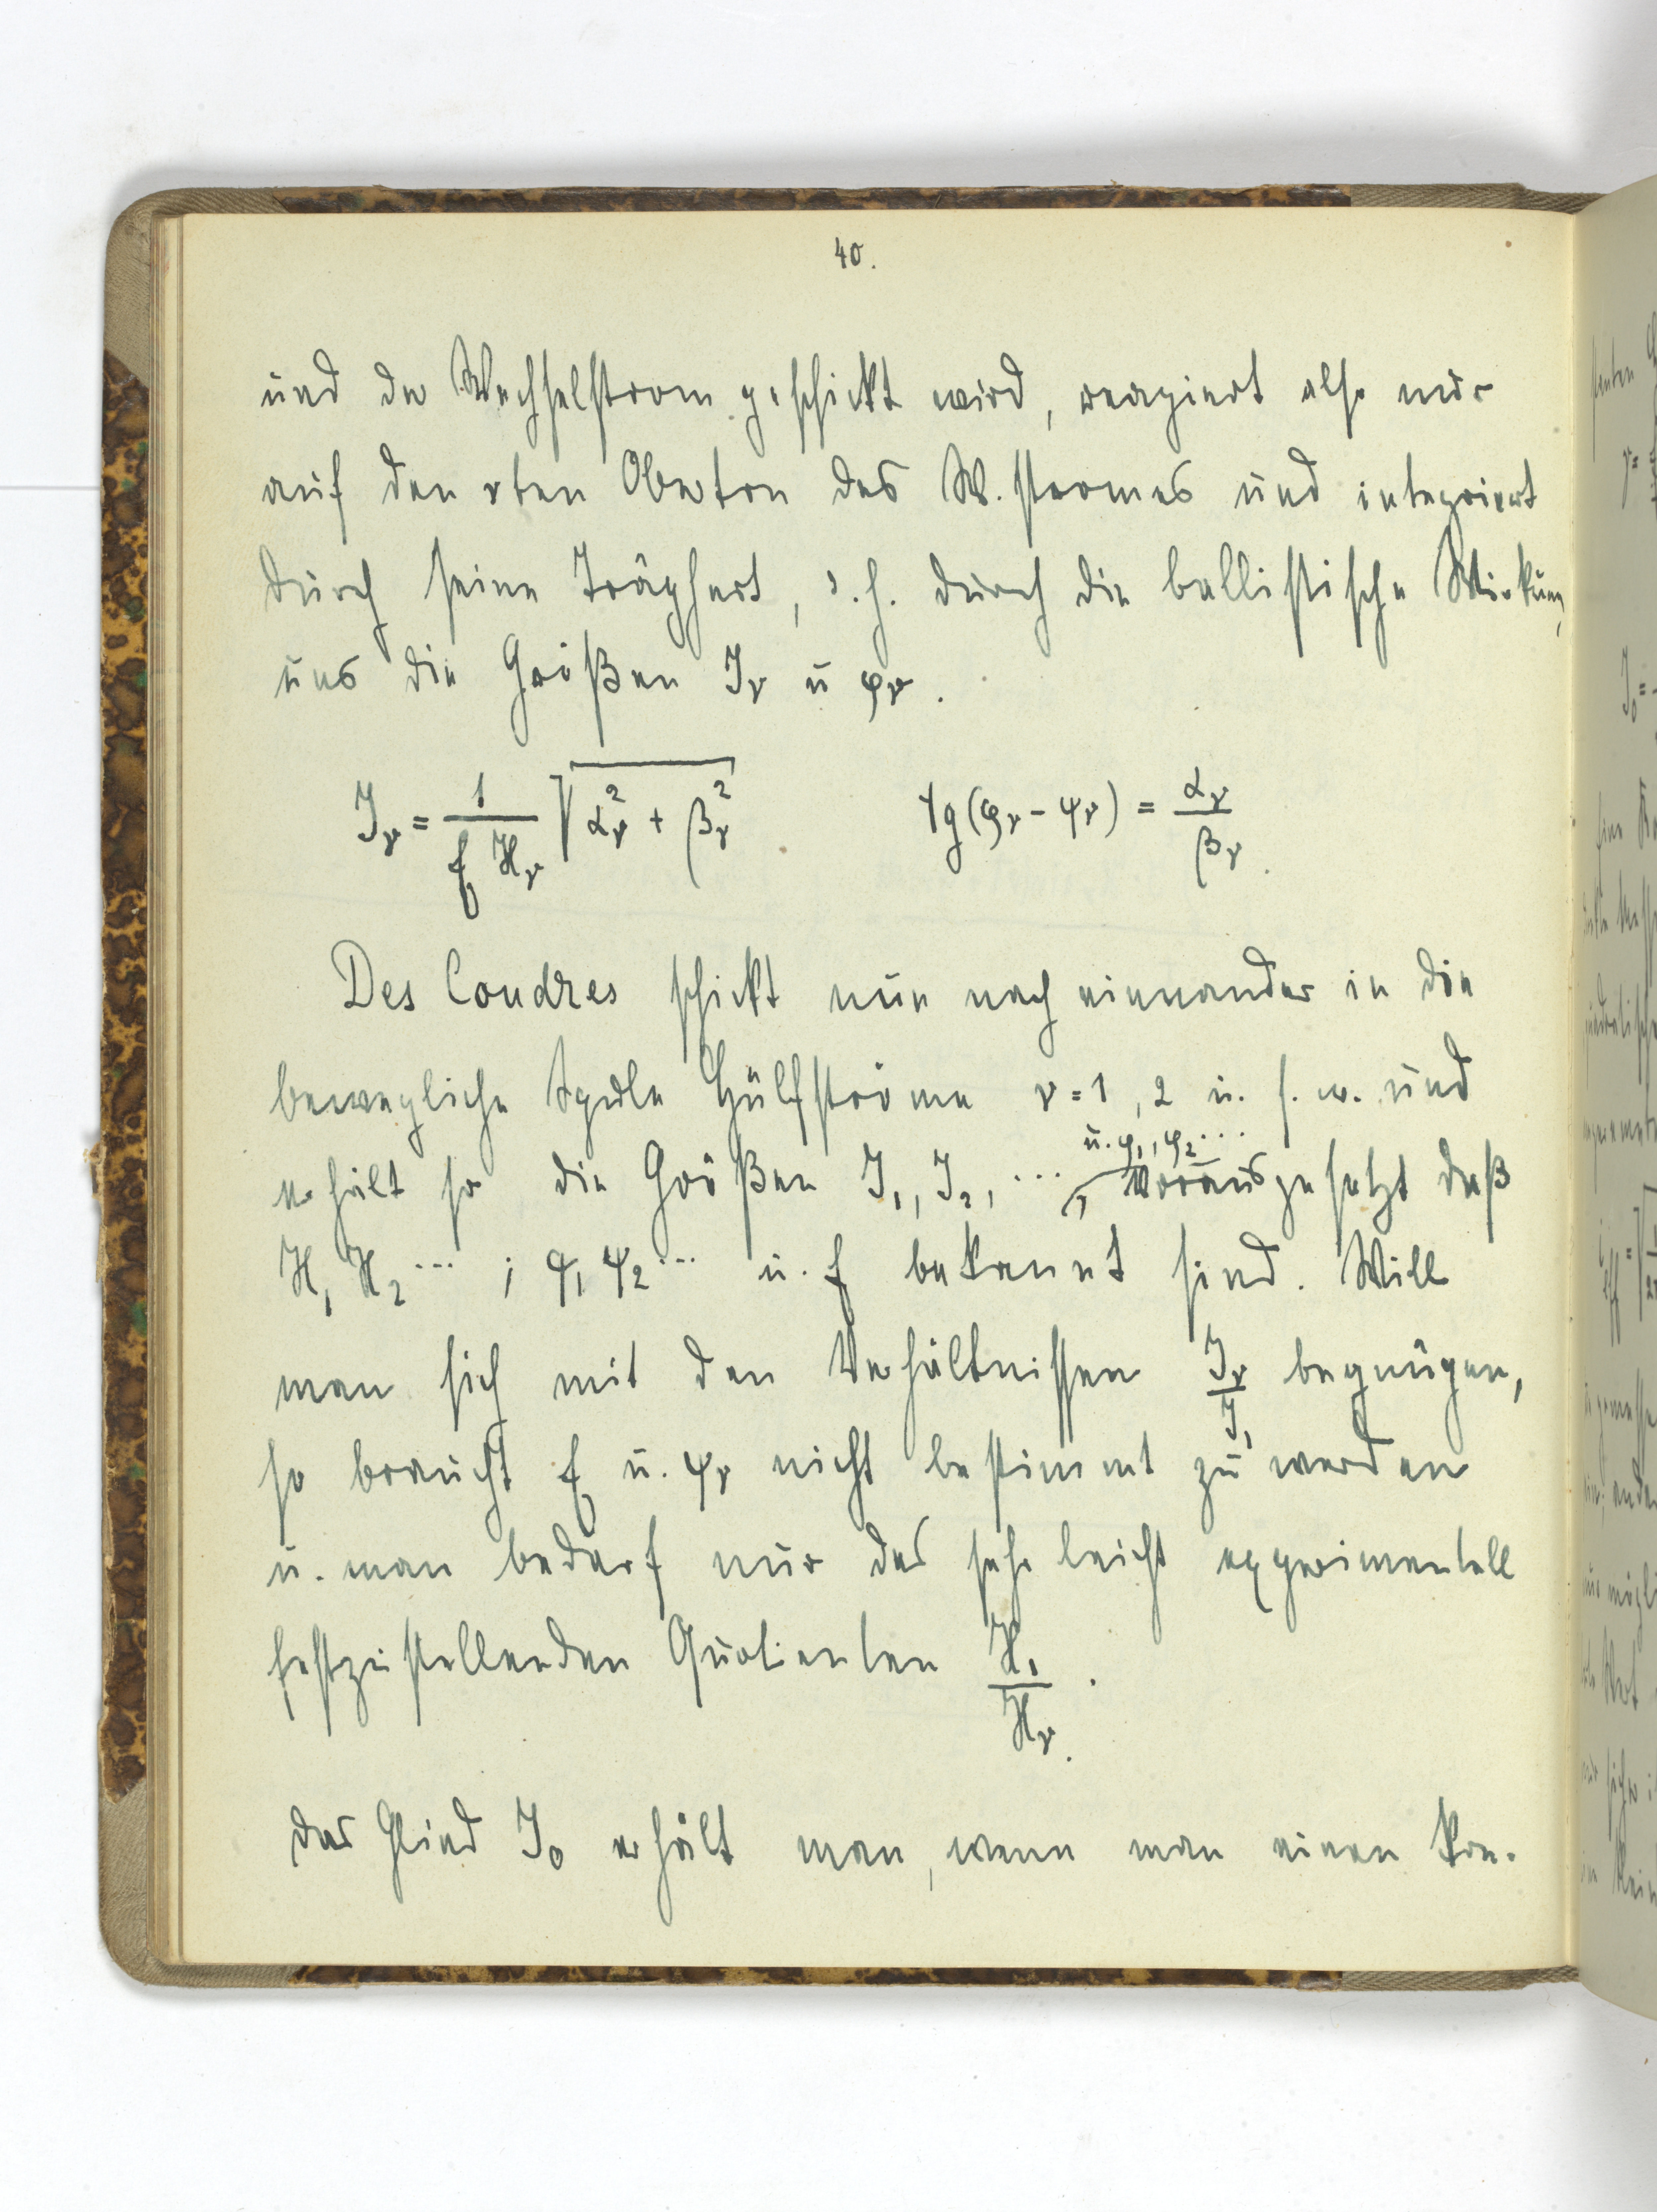 40.
und der Wechselstrom geschickt wird, reagiert also nur
auf den νten Oberton des W. stromes und integriert
durch seine Trägheit, d. h. durch die ballistische Wirkung
uns die Größen J_ν u φ_ν.
J_ν = 1/(f H_ν) √(α_ν² + β_ν²). tg(φ_ν - ψ_ν) = α_ν/β_ν.
Des Coudres schickt nun nach einander in die
bewegliche Spule Hülfströme ν = 1, 2 u. s. w. und
u. φ₁, φ₂ ...
erhält so die Größen J₁, J₂, ... , vorausgesetzt daß
H₁ H₂ ... ; ψ₁ ψ₂ ... u. f bekannt sind. Will
man sich mit den Verhältnissen J_ν/J₁ begnügen,
so braucht f u. ψ_ν nicht bestimmt zu werden
u. man bedarf nur des sehr leicht experimentell
festzustellenden Quotienten H₁/H_ν.
Das Glied J₀ erhält man, wenn man einen kon-